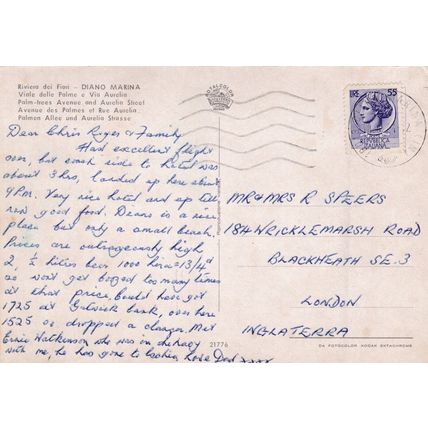 Riviera dei Fiori - DIANO MARINA
Viale delle Palme e Via Aurelia
Palm-trees Avenue and Aurelia Street
Avenue des Palmes et Rue Aurelia
Palmen Allee und Aurelia Strasse
Dear Chris Roger & Family
Had excellent flight
over, but coach ride to hotel was
about 3 hrs, landed up here about
9 P.m. Very nice hotel and up till
now good food. Deano is a nice
place but only a small beach.
Prices are outrageously high
2, ½ litres beer 1000 lire = 13/4d
so won't get boozed too many times
at that price, could have got
1725 at Gatwick bank, over here
1525 so dropped a clanger, Met
Ernie Watkinson who was on the
with me, he has gone to Love Dad xxxx
LIRE 55
ITALIANA
MR & MRS R SPEERS
184 WRICKLEMARSH ROAD
BLACKHEATH SE.3
LONDON
INGLATERRA
21776
DA FOTOCOLOR KODAK EKTACHROME